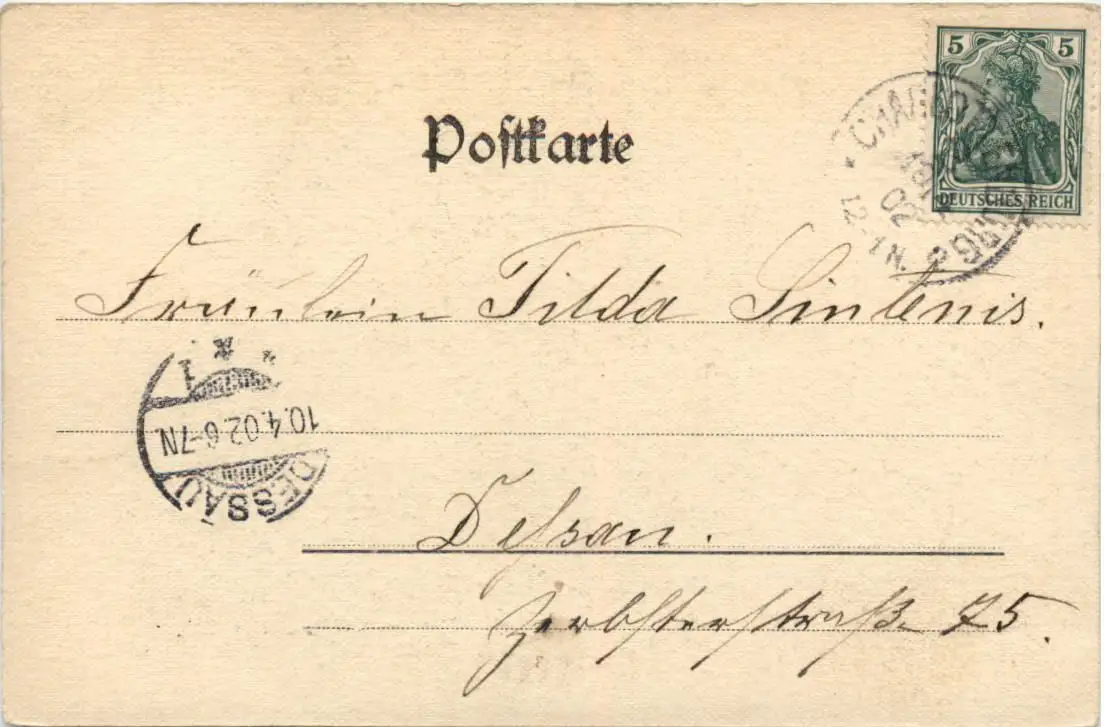 5 5
DEUTSCHES REICH
Postkarte
Fräulein Tilda Sintenis.
* * 1
10.4.02.6-7N
DESSAU
Dessau.
Zerbsterstraße 75.